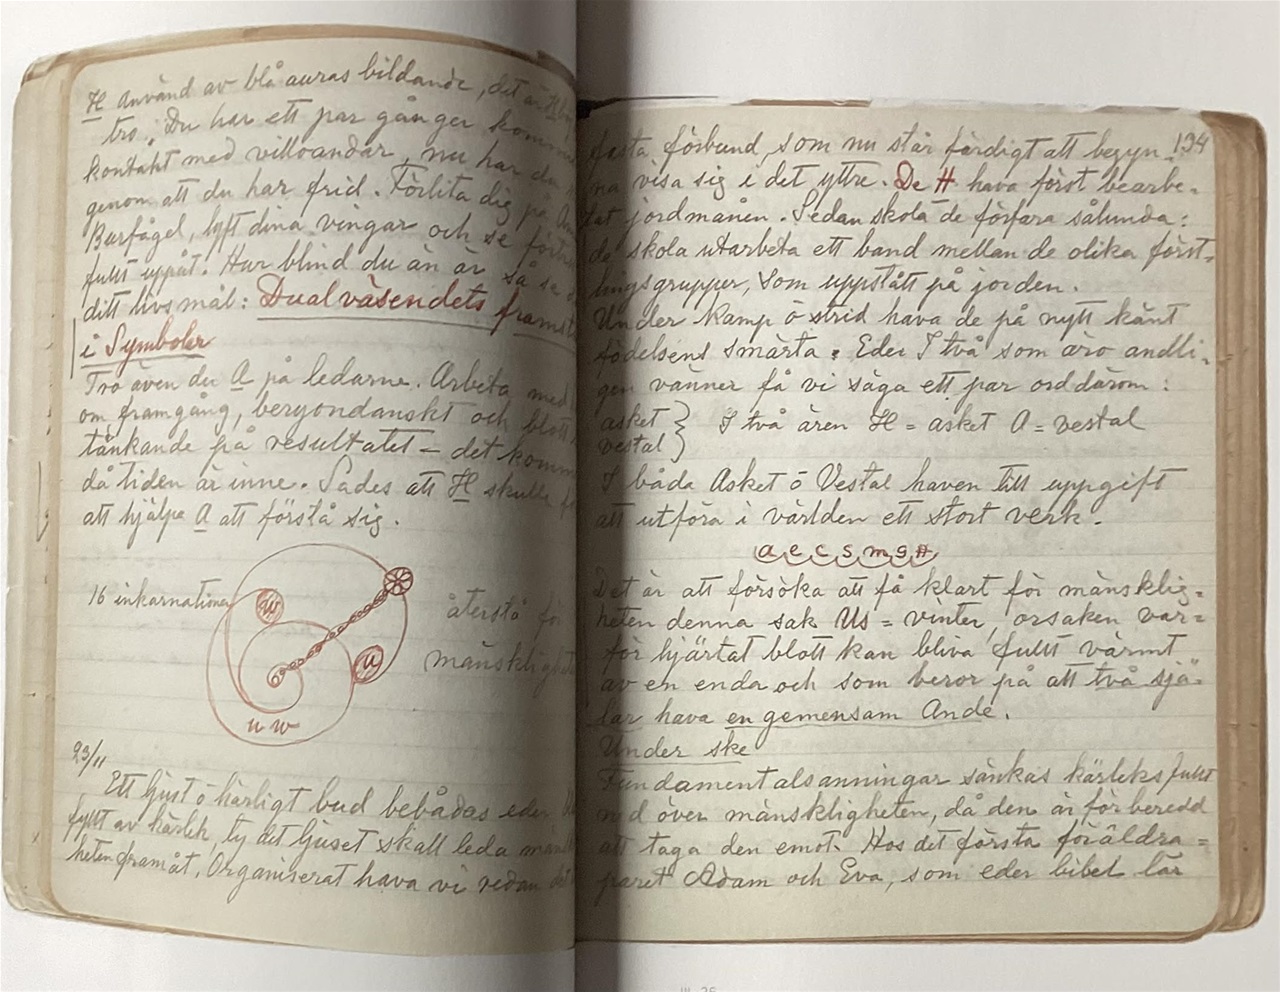 H använd av blå auras bildande, det är
tro. Du har ett par gånger
kontakt med villoandar, nu har du
genom att du har frid. Förlita dig på
Burfågel, lyft dina vingar och se
fullt uppåt. Hur blind du än är så se
ditt livsmål: Dualväsendets
i Symboler
Tro även du A på ledarne. Arbeta med
om framgång, och blott
tänkande på resultatet – det
då tiden är inne. Sades att H skulle få
att hjälpa A att förstå sig.
16 inkarnationer återstå för
w
u
mänsklighet
u w
23/11
Ett ljust o härligt bud bebådas eder
fyllt av kärlek, ty det ljuset skall leda
heten framåt. Organiserat hava vi redan
134
fasta förbund, som nu står färdigt att begyn-
na visa sig i det yttre. De H hava först bearbe-
tat jordmånen. Sedan skola de förfara sålunda:
de skola utarbeta ett band mellan de olika först-
lingsgrupper, som uppstått på jorden.
Under kamp o strid hava de på nytt känt
födelsens smärta. Eder I två som äro andli-
gen vänner få vi säga ett par ord därom:
asket
vestal } I två ären H = asket A = vestal
I båda Asket o Vestal haven till uppgift
att utföra i världen ett stort verk.
a e c s m g A
Det är att försöka att få klart för mänsklig-
heten denna sak Us = vinter, orsaken var-
för hjärtat blott kan bliva fullt värmt
av en enda och som beror på att två sjä-
lar hava en gemensam Ande.
Under ske
Fundamentalsanningar sänkas kärleksfullt
ned över mänskligheten, då den är förberedd
att taga den emot. Hos det första föräldra-
paret Adam och Eva, som eder bibel lär